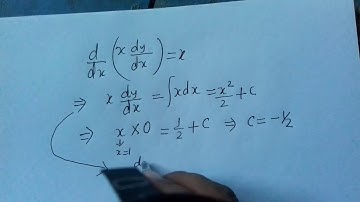 d/dx (x dy/dx) = x
⇒ x dy/dx = ∫xdx = x²/2 + c
⇒ x × 0 = 1/2 + C ⇒ C = -1/2
x=1
d